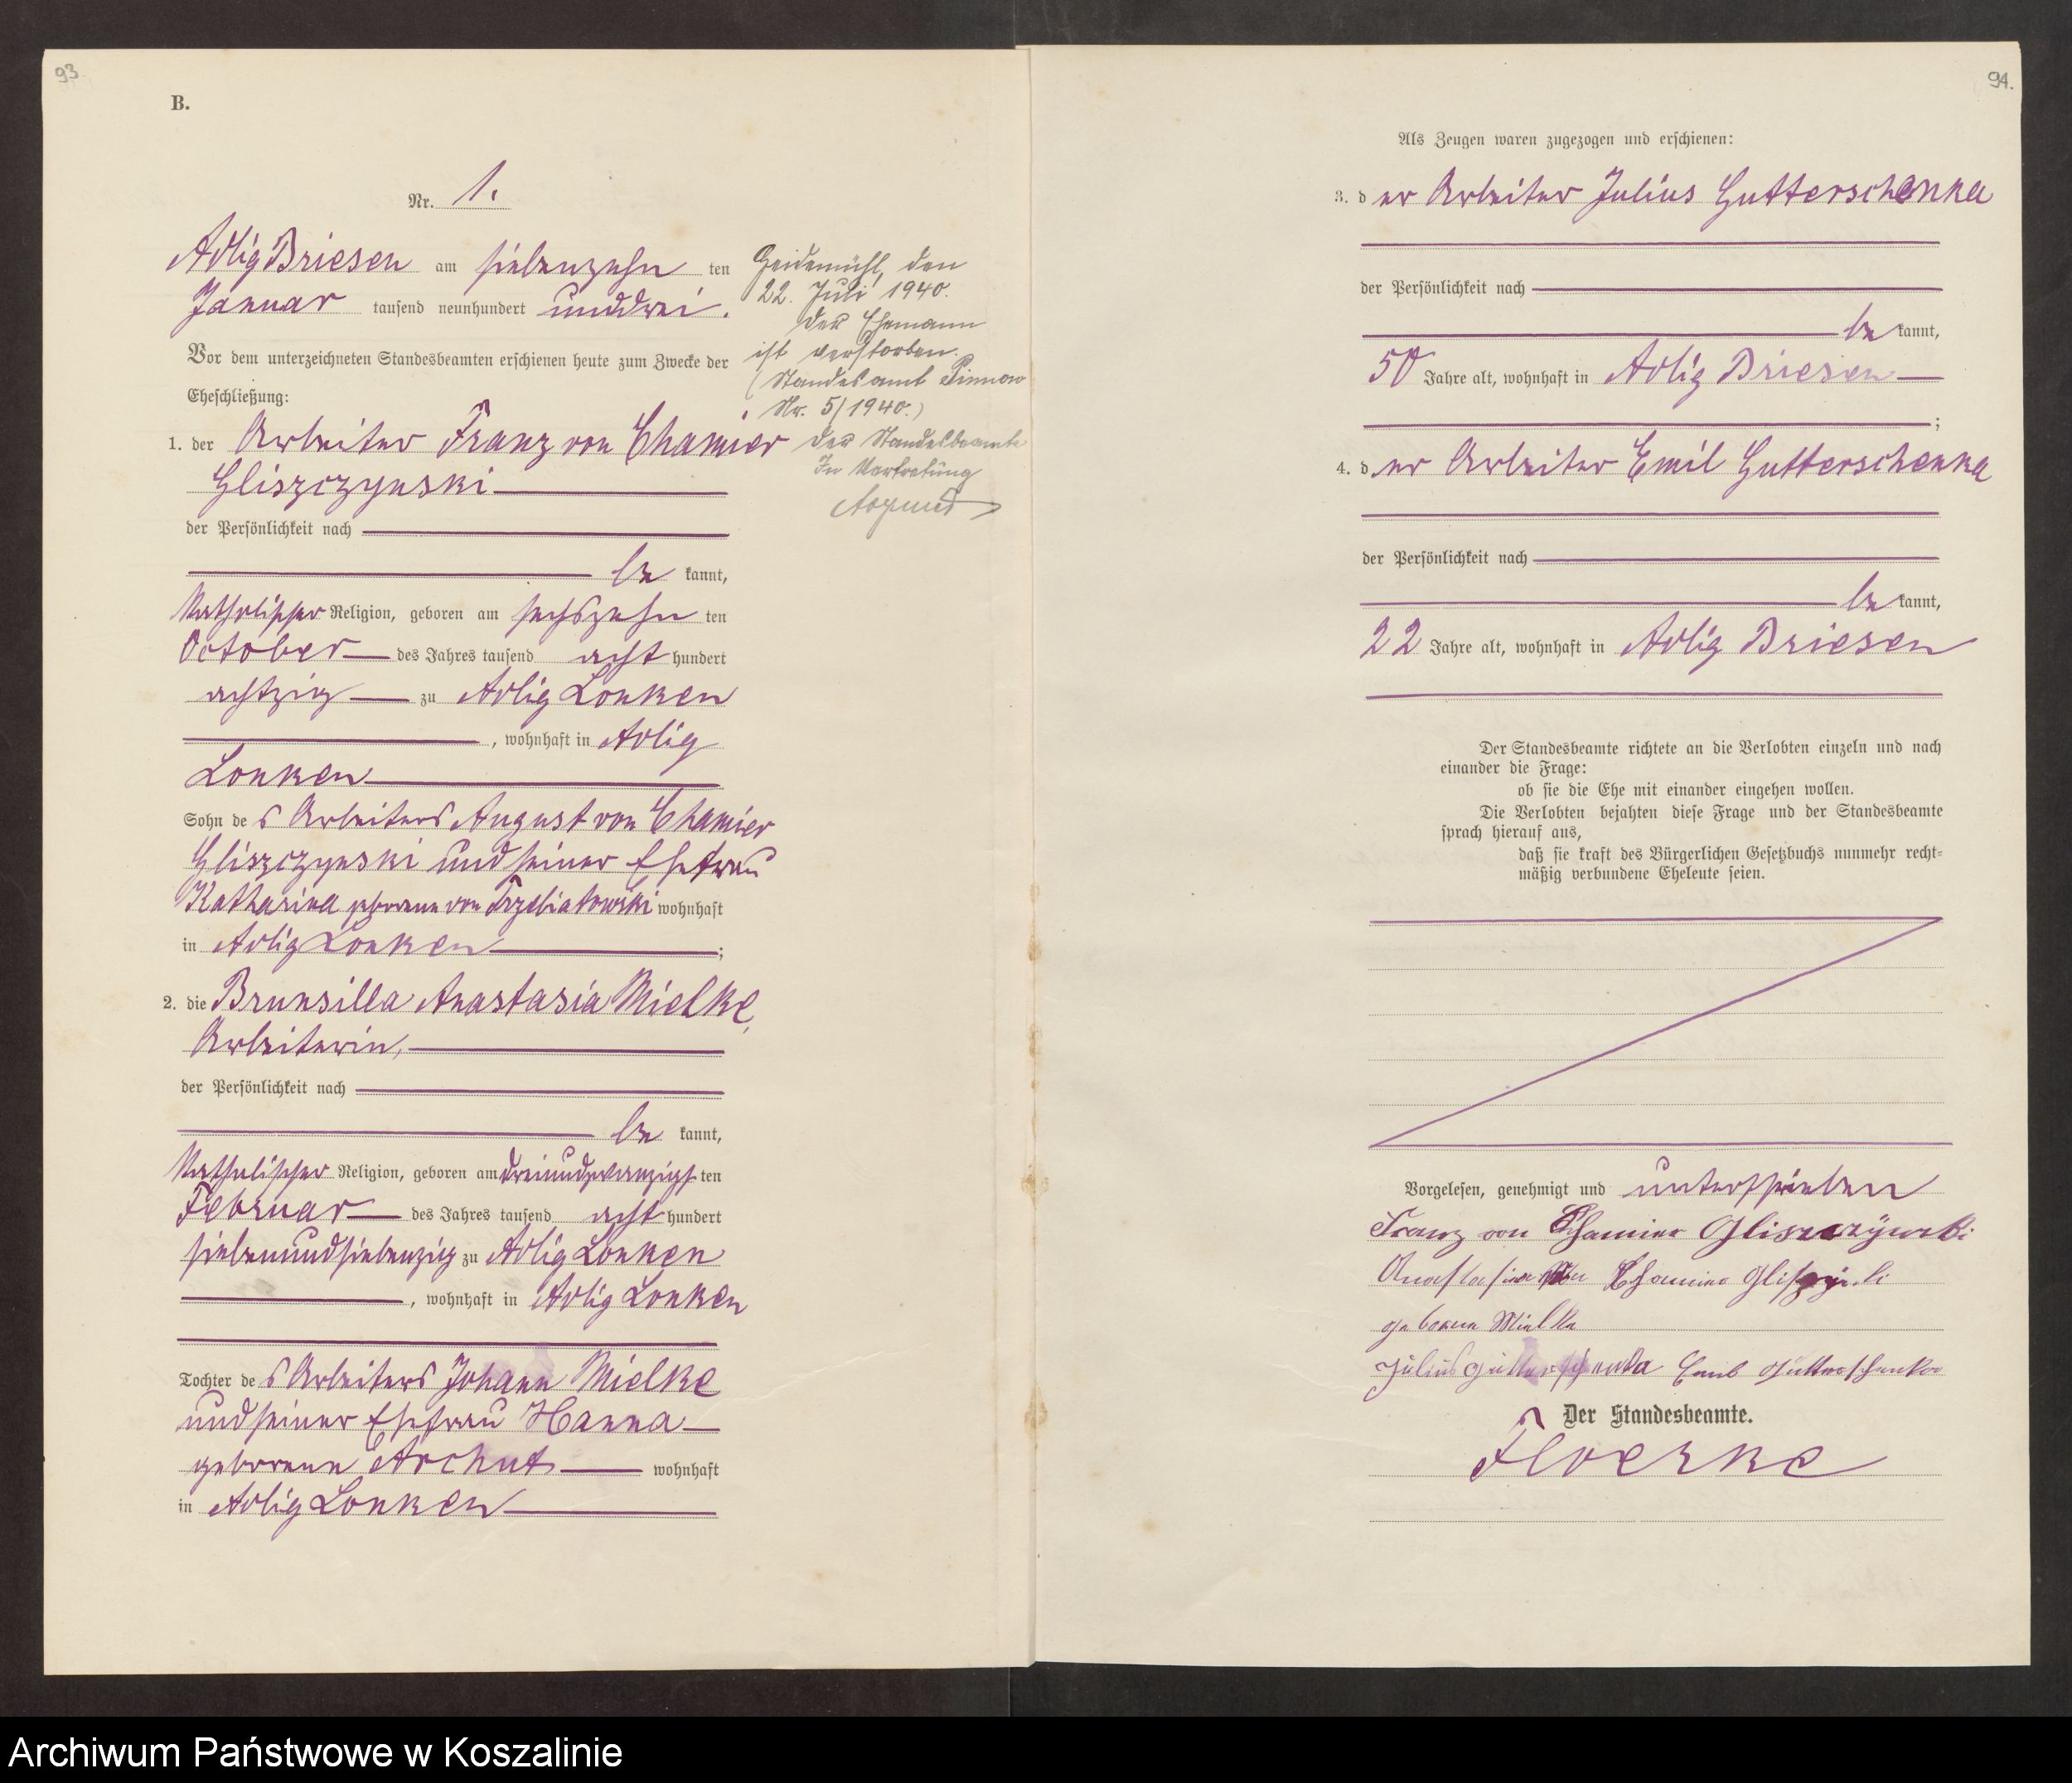 93
B.
Nr. 1.
Adlig Briesen am siebenzehn ten
Januar tausend neunhundert unddrei.
Vor dem unterzeichneten Standesbeamten erschienen heute zum Zwecke der
Eheschließung:
1. der Arbeiter Franz von Chamier
Gliszczynski
der Persönlichkeit nach
be kannt,
katholischer Religion, geboren am sechszehn ten
October des Jahres tausend acht hundert
achtzig zu Adlig Lonken
, wohnhaft in Adlig
Lonken
Sohn de s Arbeiters August von Chamier
Gliszczynski und seiner Ehefrau
Katharina geborene von Trzebiatowski wohnhaft
in Adlig Lonken ;
2. die Brunsilla Anastasia Mielke,
Arbeiterin,
der Persönlichkeit nach
be kannt,
katholischer Religion, geboren am dreiundzwanzigs ten
Februar des Jahres tausend acht hundert
siebenundsiebenzig zu Adlig Lonken
, wohnhaft in Adlig Lonken
Tochter de s Arbeiters Johann Mielke
und seiner Ehefrau Hanna
geborene Archut wohnhaft
in Adlig Lonken
den
22. Juli 1940.
Der Ehemann
ist verstorben.
(Standesamt Pinnow
Nr. 5/1940.)
Der Standesbeamte
In Vertretung
94.
Als Zeugen waren zugezogen und erschienen:
3. d er Arbeiter Julius Gutterschenka
der Persönlichkeit nach
be kannt,
50 Jahre alt, wohnhaft in Adlig Briesen
;
4. d er Arbeiter Emil Gutterschenka
der Persönlichkeit nach
be kannt,
22 Jahre alt, wohnhaft in Adlig Briesen
Der Standesbeamte richtete an die Verlobten einzeln und nach
einander die Frage:
ob sie die Ehe mit einander eingehen wollen.
Die Verlobten bejahten diese Frage und der Standesbeamte
sprach hierauf aus,
daß sie kraft des Bürgerlichen Gesetzbuchs nunmehr recht-
mäßig verbundene Eheleute seien.
Vorgelesen, genehmigt und unterschrieben
Franz von Chamier Gliszczÿnski
Anastasia von Chamier
geborene Mielke
Julius Gutterschenka Emil Gutterschenka
Der Standesbeamte.
Floerke
Archiwum Państwowe w Koszalinie